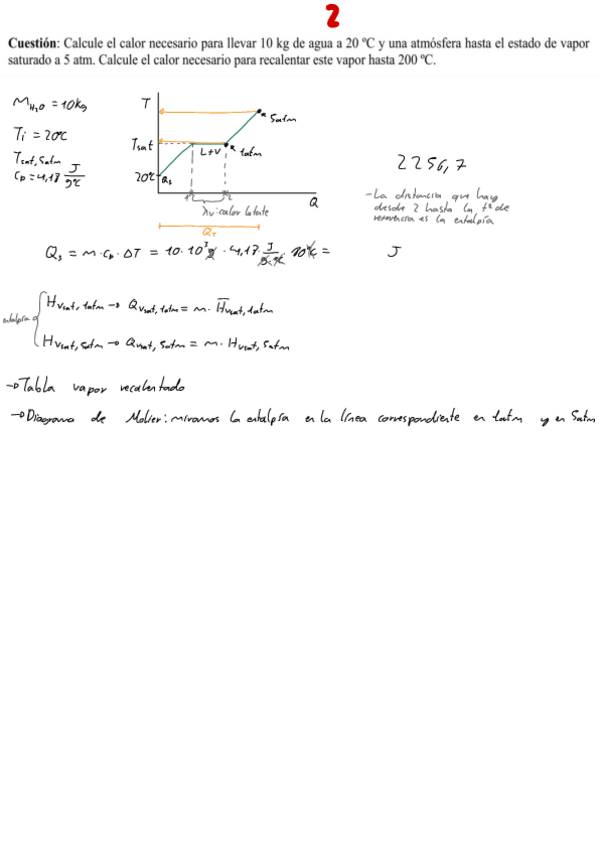 2
Cuestión: Calcule el calor necesario para llevar 10 kg de agua a 20 ºC y una atmósfera hasta el estado de vapor
saturado a 5 atm. Calcule el calor necesario para recalentar este vapor hasta 200 ºC.
M_H₂O = 10kg
Ti = 20ºC
Tsat, 5atm
Cp = 4,18 J/gºC
T
5atm
Tsat
L+V
1atm
20ºC
Qs
Q
λv: calor latente
QT
2256,7
- La distancia que hay
desde 2 hasta la tª de
referencia es la entalpía
Qs = m · Cp · ΔT = 10 · 10³ g · 4,18 J/g·ºC · ºC = J
entalpía
Hvsat, 1atm → Qvsat, 1atm = m · H̅vsat, 1atm
Hvsat, 5atm → Qvsat, 5atm = m · Hvsat, 5atm
→ Tabla vapor recalentado
→ Diagrama de Molier: miramos la entalpía en la línea correspondiente en 1atm y en 5atm